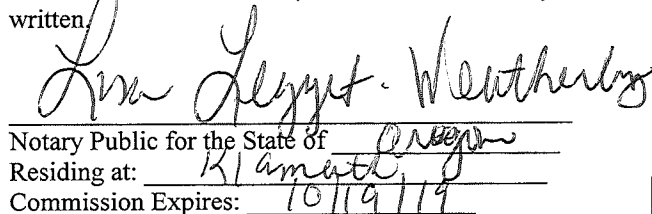 written.
Lisa Legget-Weatherby
Notary Public for the State of Oregon
Residing at: Klamath
Commission Expires: 10/19/19